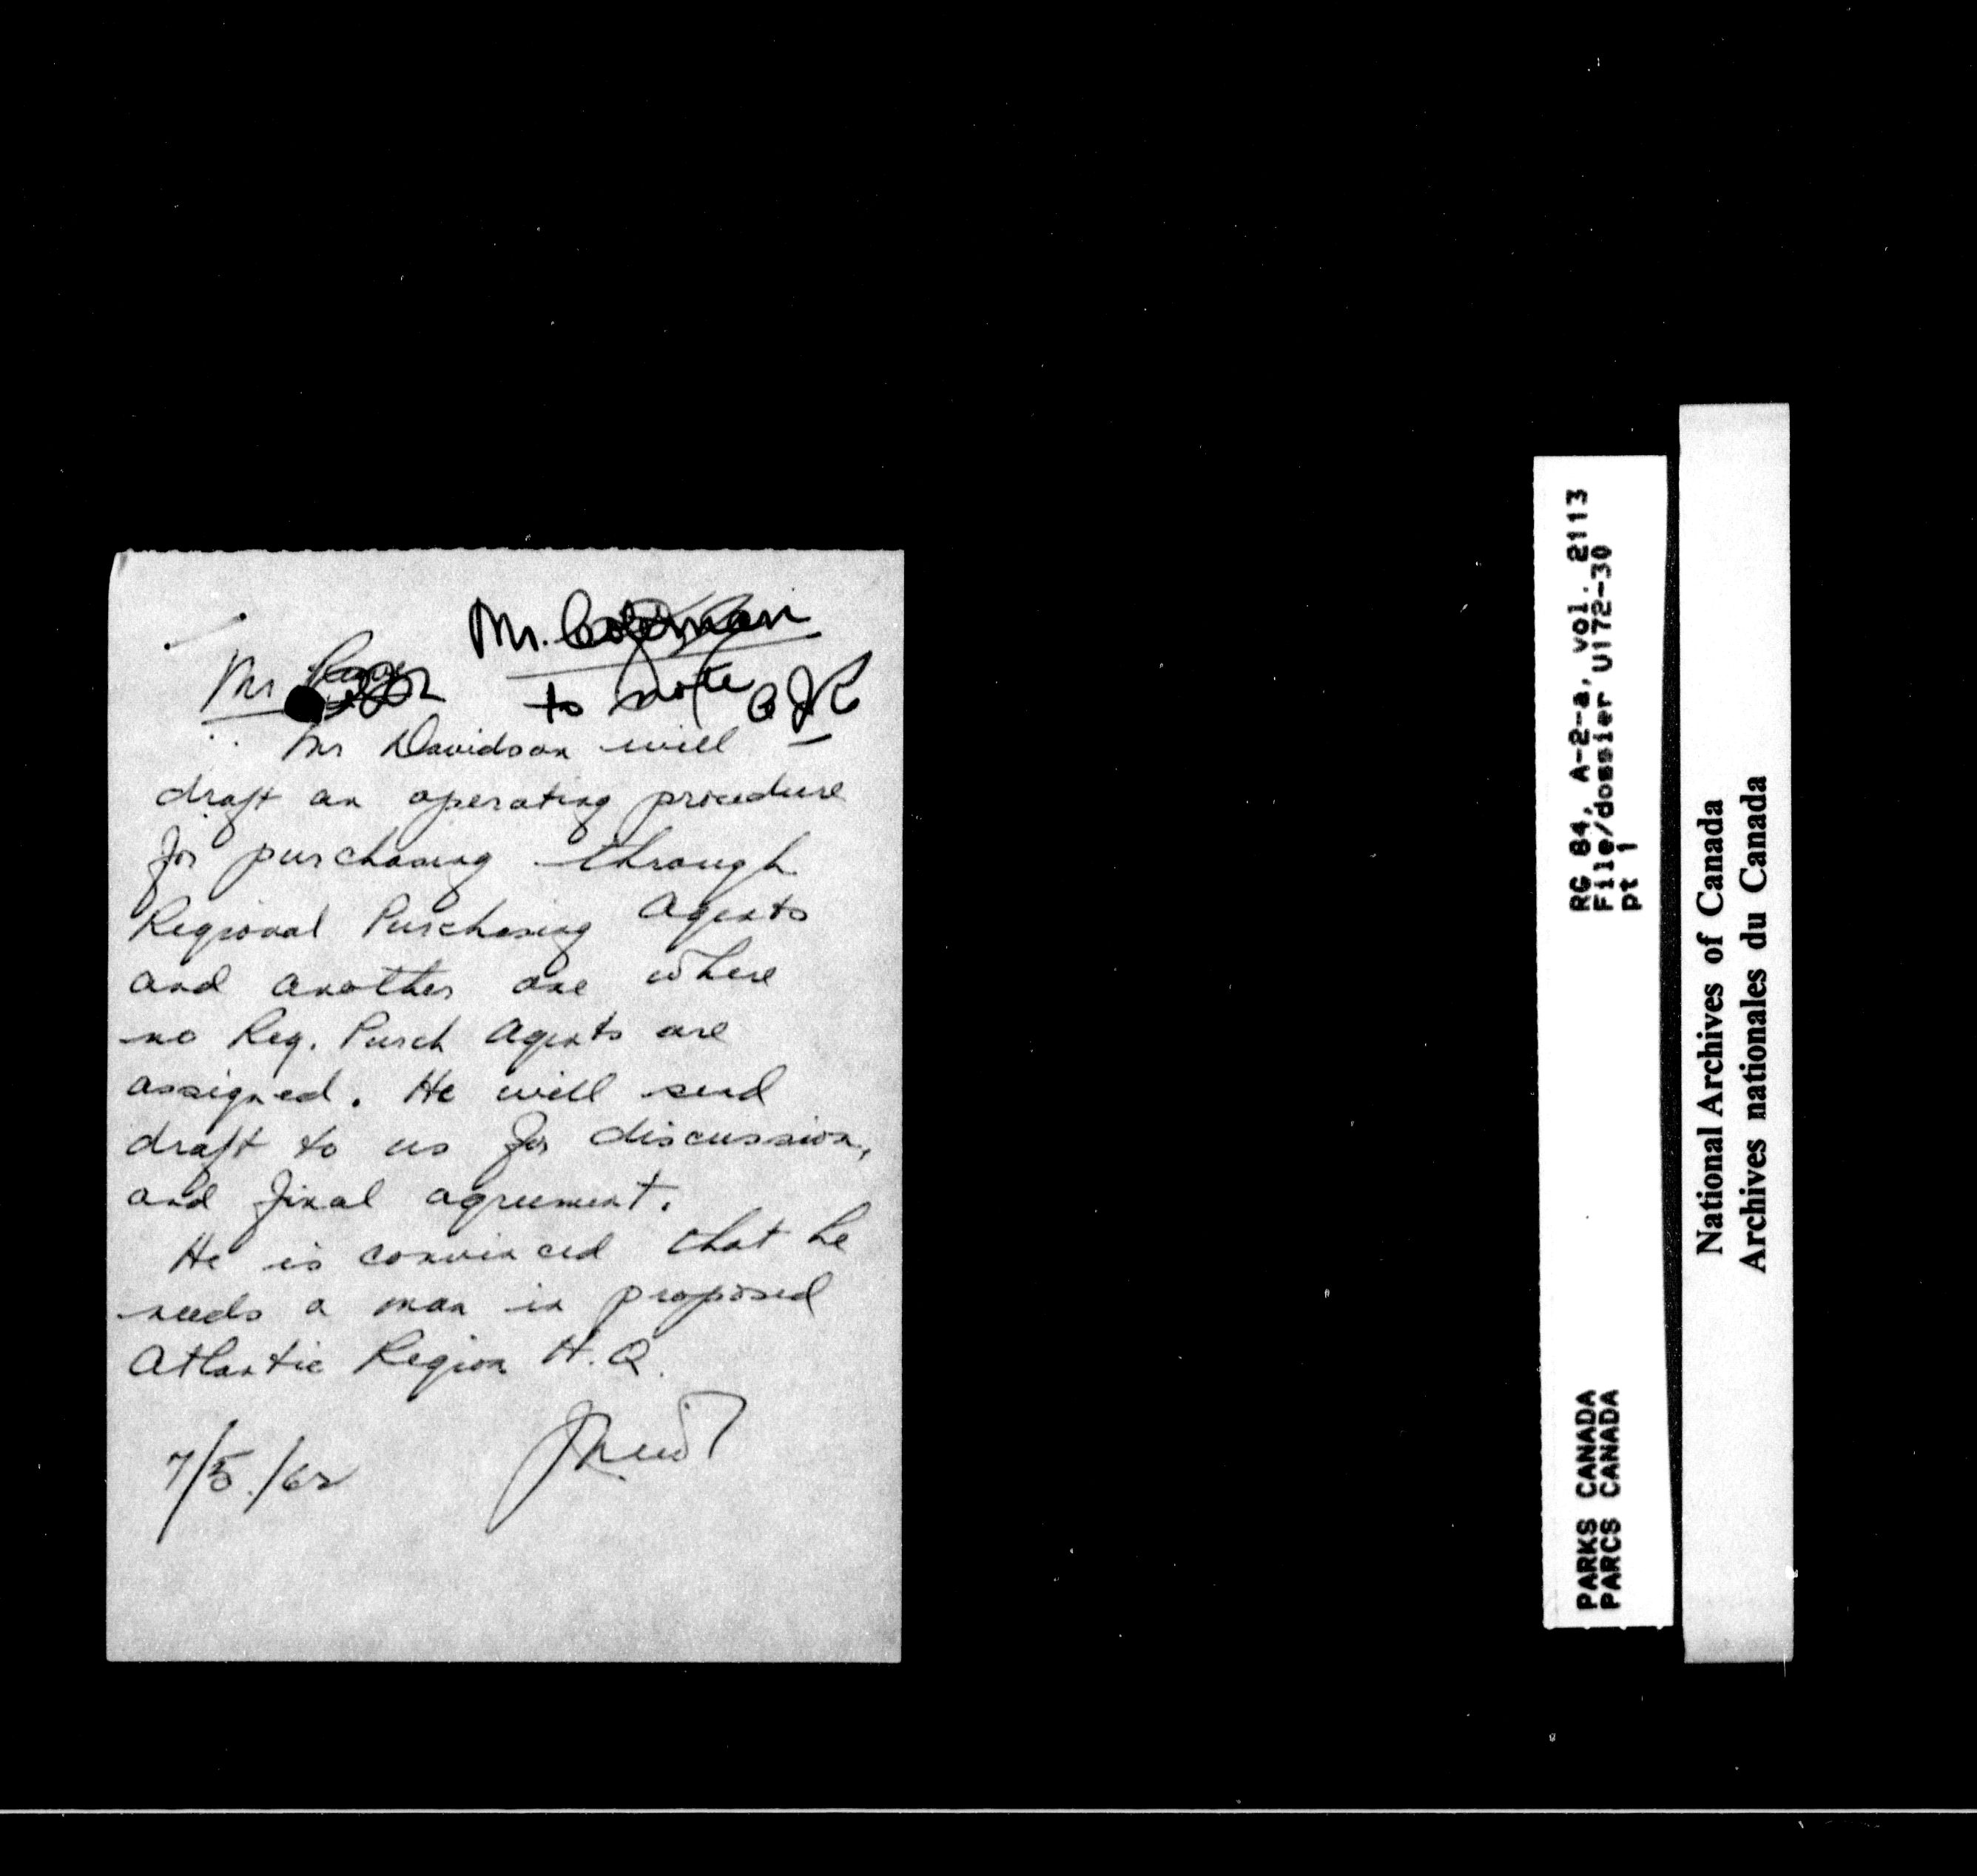 Mr. Coleman
to note
Mr
Mr Davidson will
draft an operating procedure
for purchasing through
Regional Purchasing Agents
and another one where
no Reg. Purch Agents are
assigned. He will send
draft to us for discussion,
and final agreement.
He is convinced that he
needs a man in proposed
Atlantic Region H.Q.
7/5/62
RG 84, A-2-a, vol. 2113
File/dossier U172-30
pt 1
PARKS CANADA
PARCS CANADA
National Archives of Canada
Archives nationales du Canada